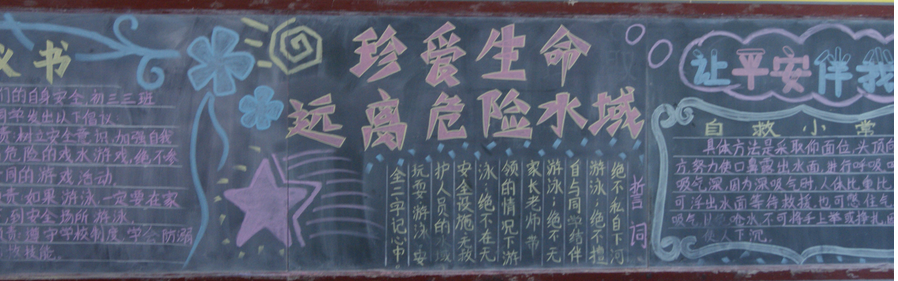 义书
们的自身安全,初三三班
同学发出以下倡议
责:树立安全意识,加强自我
危险的戏水游戏,绝不参
同的游戏活动.
责:如果游泳一定要在家
到安全场所游泳.
责:遵守学校制度,学会防溺
技能.
珍爱生命
远离危险水域
誓词
绝不私自下河
游泳;绝不擅
自与同学结伴
游泳;绝不无
家长老师带
领的情况下游
泳;绝不在无
安全设施、无救
护人员的水域
玩耍、游泳,安
全二字记心中
让平安伴我
自救小常
具体方法是采取仰面位,头顶向
方,努力使口鼻露出水面,进行呼吸
吸气深,因为深吸气时,人体比重比
可浮出水面等待救援,也可憋住气
吸气以免呛水,不可将手上举或挣扎,
使人下沉.